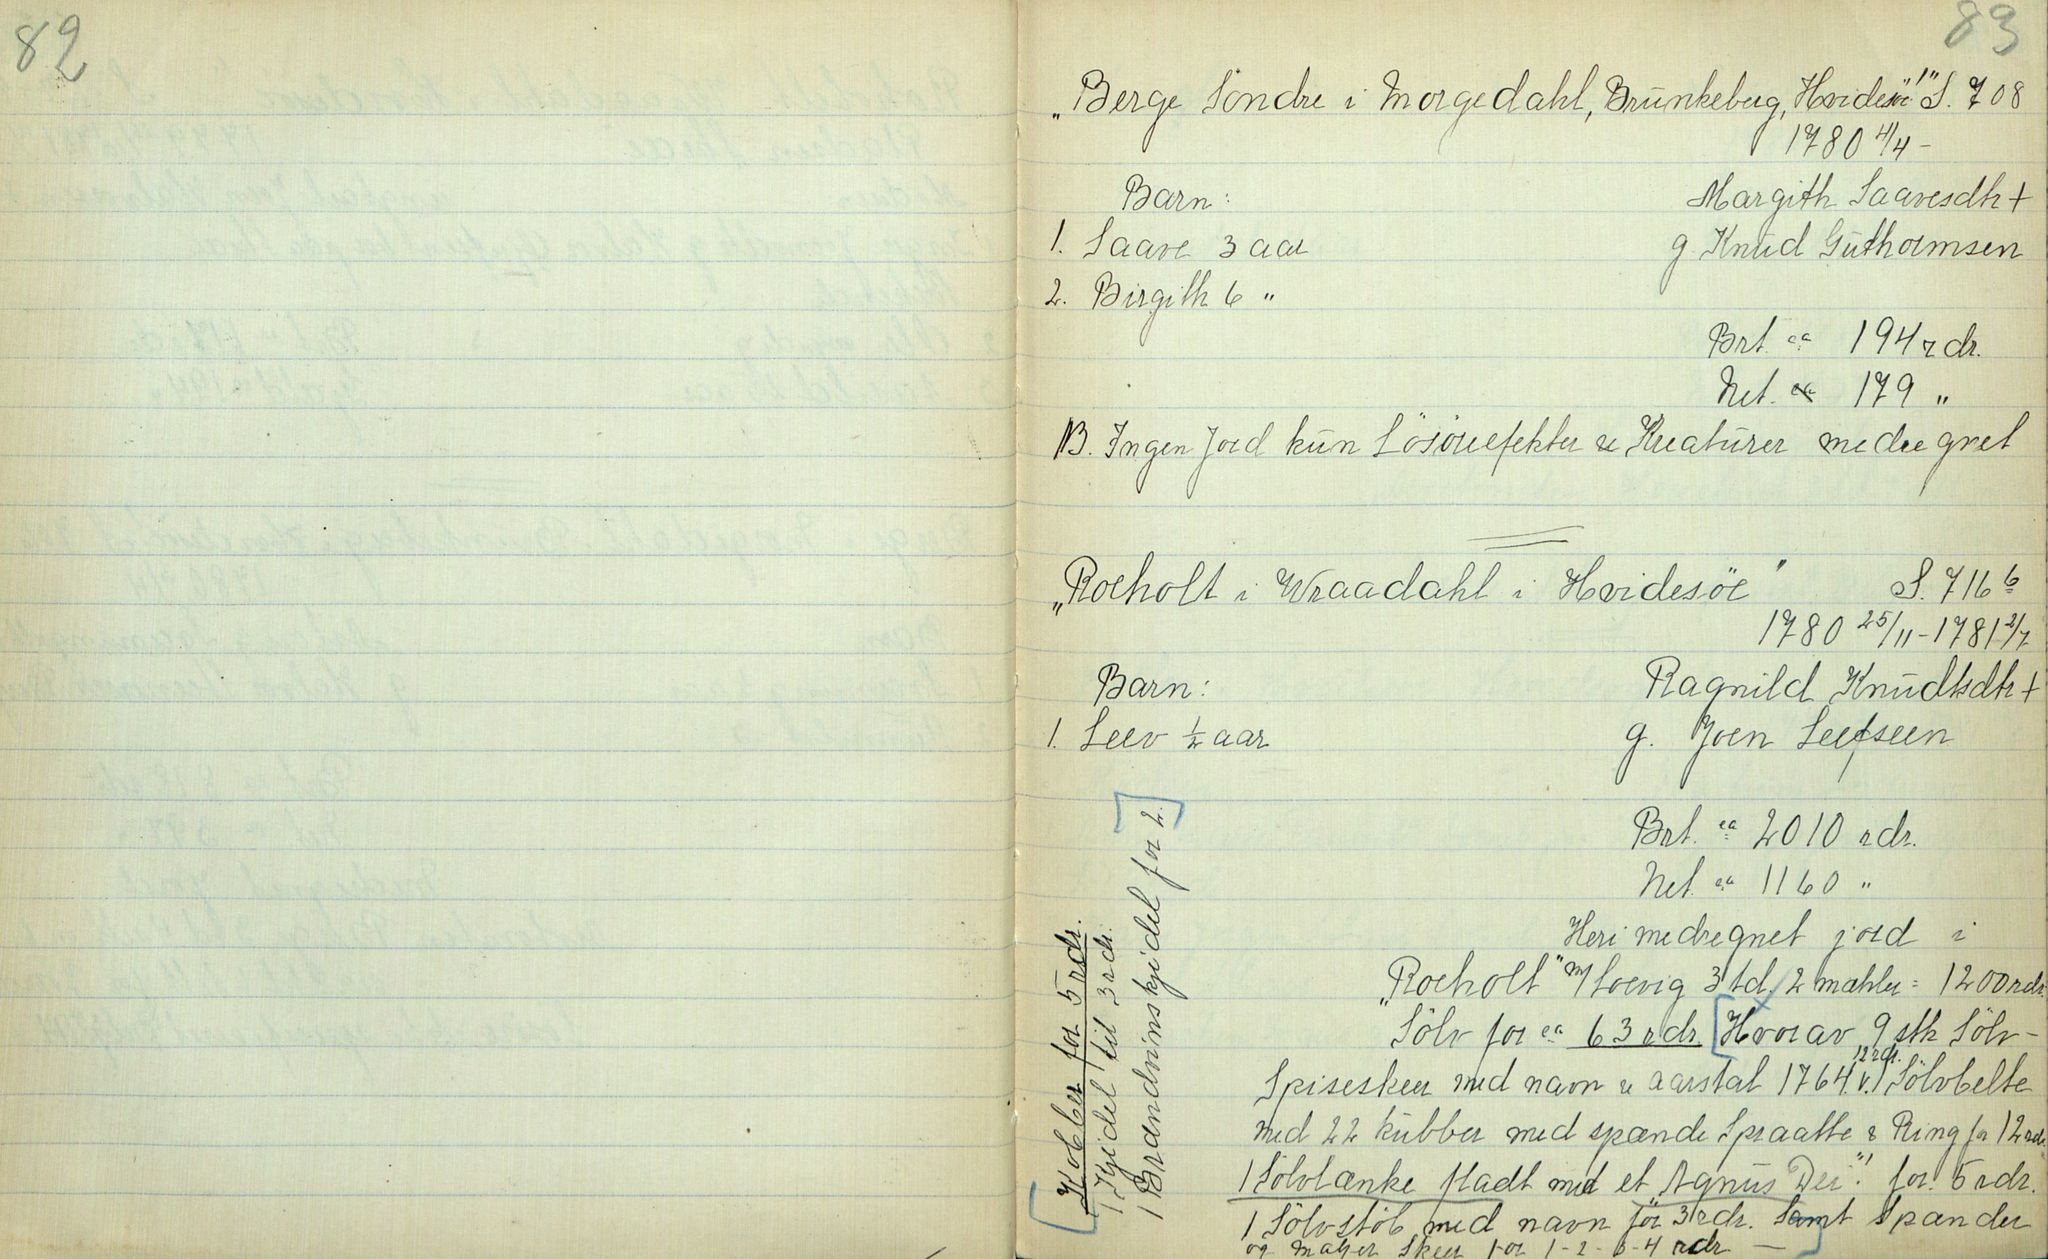 82
83
„Berge Söndre i Morgedahl, Brünkeberg, Hvidesöe" S. 708
1780 4/4 –
Barn:
Margith Saavesdtr +
1. Saave 3 aar
g Knüd Gütthormsen
2. Birgith 6 "
Brt. ca 194 rdr.
Net. ca 179 "
NB. Ingen Jord kün Lösöreefekter & Kreatürer medregnet
„Roeholt i Wraadahl i Hvidesöe" S. 716 b
1780 25/11 – 1781 2/7
Barn:
Ragnild Knüdtsdtr +
1. Leev ½ aar
g. Joen Leefseen
Brt. ca 2010 rdr.
Net. ca 1160 "
Heri medregnet jord i
„Roeholt" m/ Loevig 3 td. 2 mæhler = 1200 rdr.
Sölv for ca 63 rdr. [Hvorav 9 stk Sölv-
Spiseskeer med navn & aarstal 1764 v. 12 rdr. 1 Sölvbelte
med 22 kübber med spænde Spraatte & Ring for 12 rdr.
1 Sölvlænke fladt med et „Agnüs Dei" for 5 rdr.
1 Sölvstöb med navn för 3 rdr. Samt Spænder
og Maljer Skeer for 1-2-3-4 rdr. —]
[Kobber for 5 rdr.
1 Kjedel til 3 rdr.
1 Brændvinskjedel for 2.]